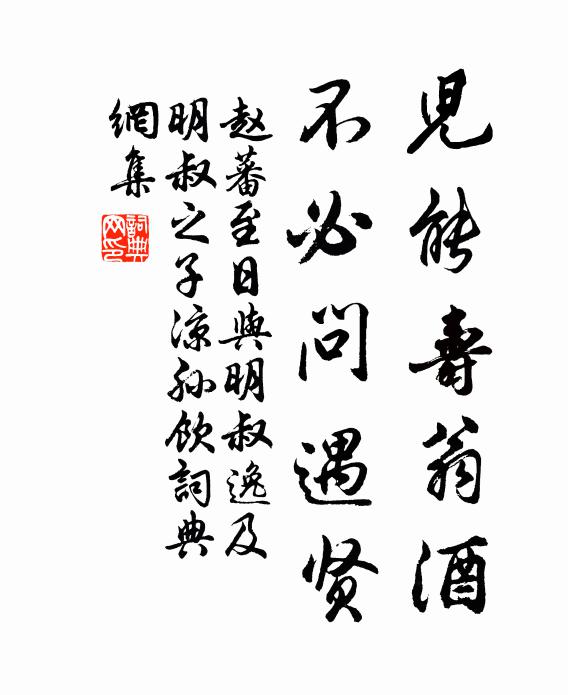 兒能壽翁酒
不必問遇贤
赵蕃至日與明叔逸及
明叔之子凉孙飲詞典
網集
詞典
网印